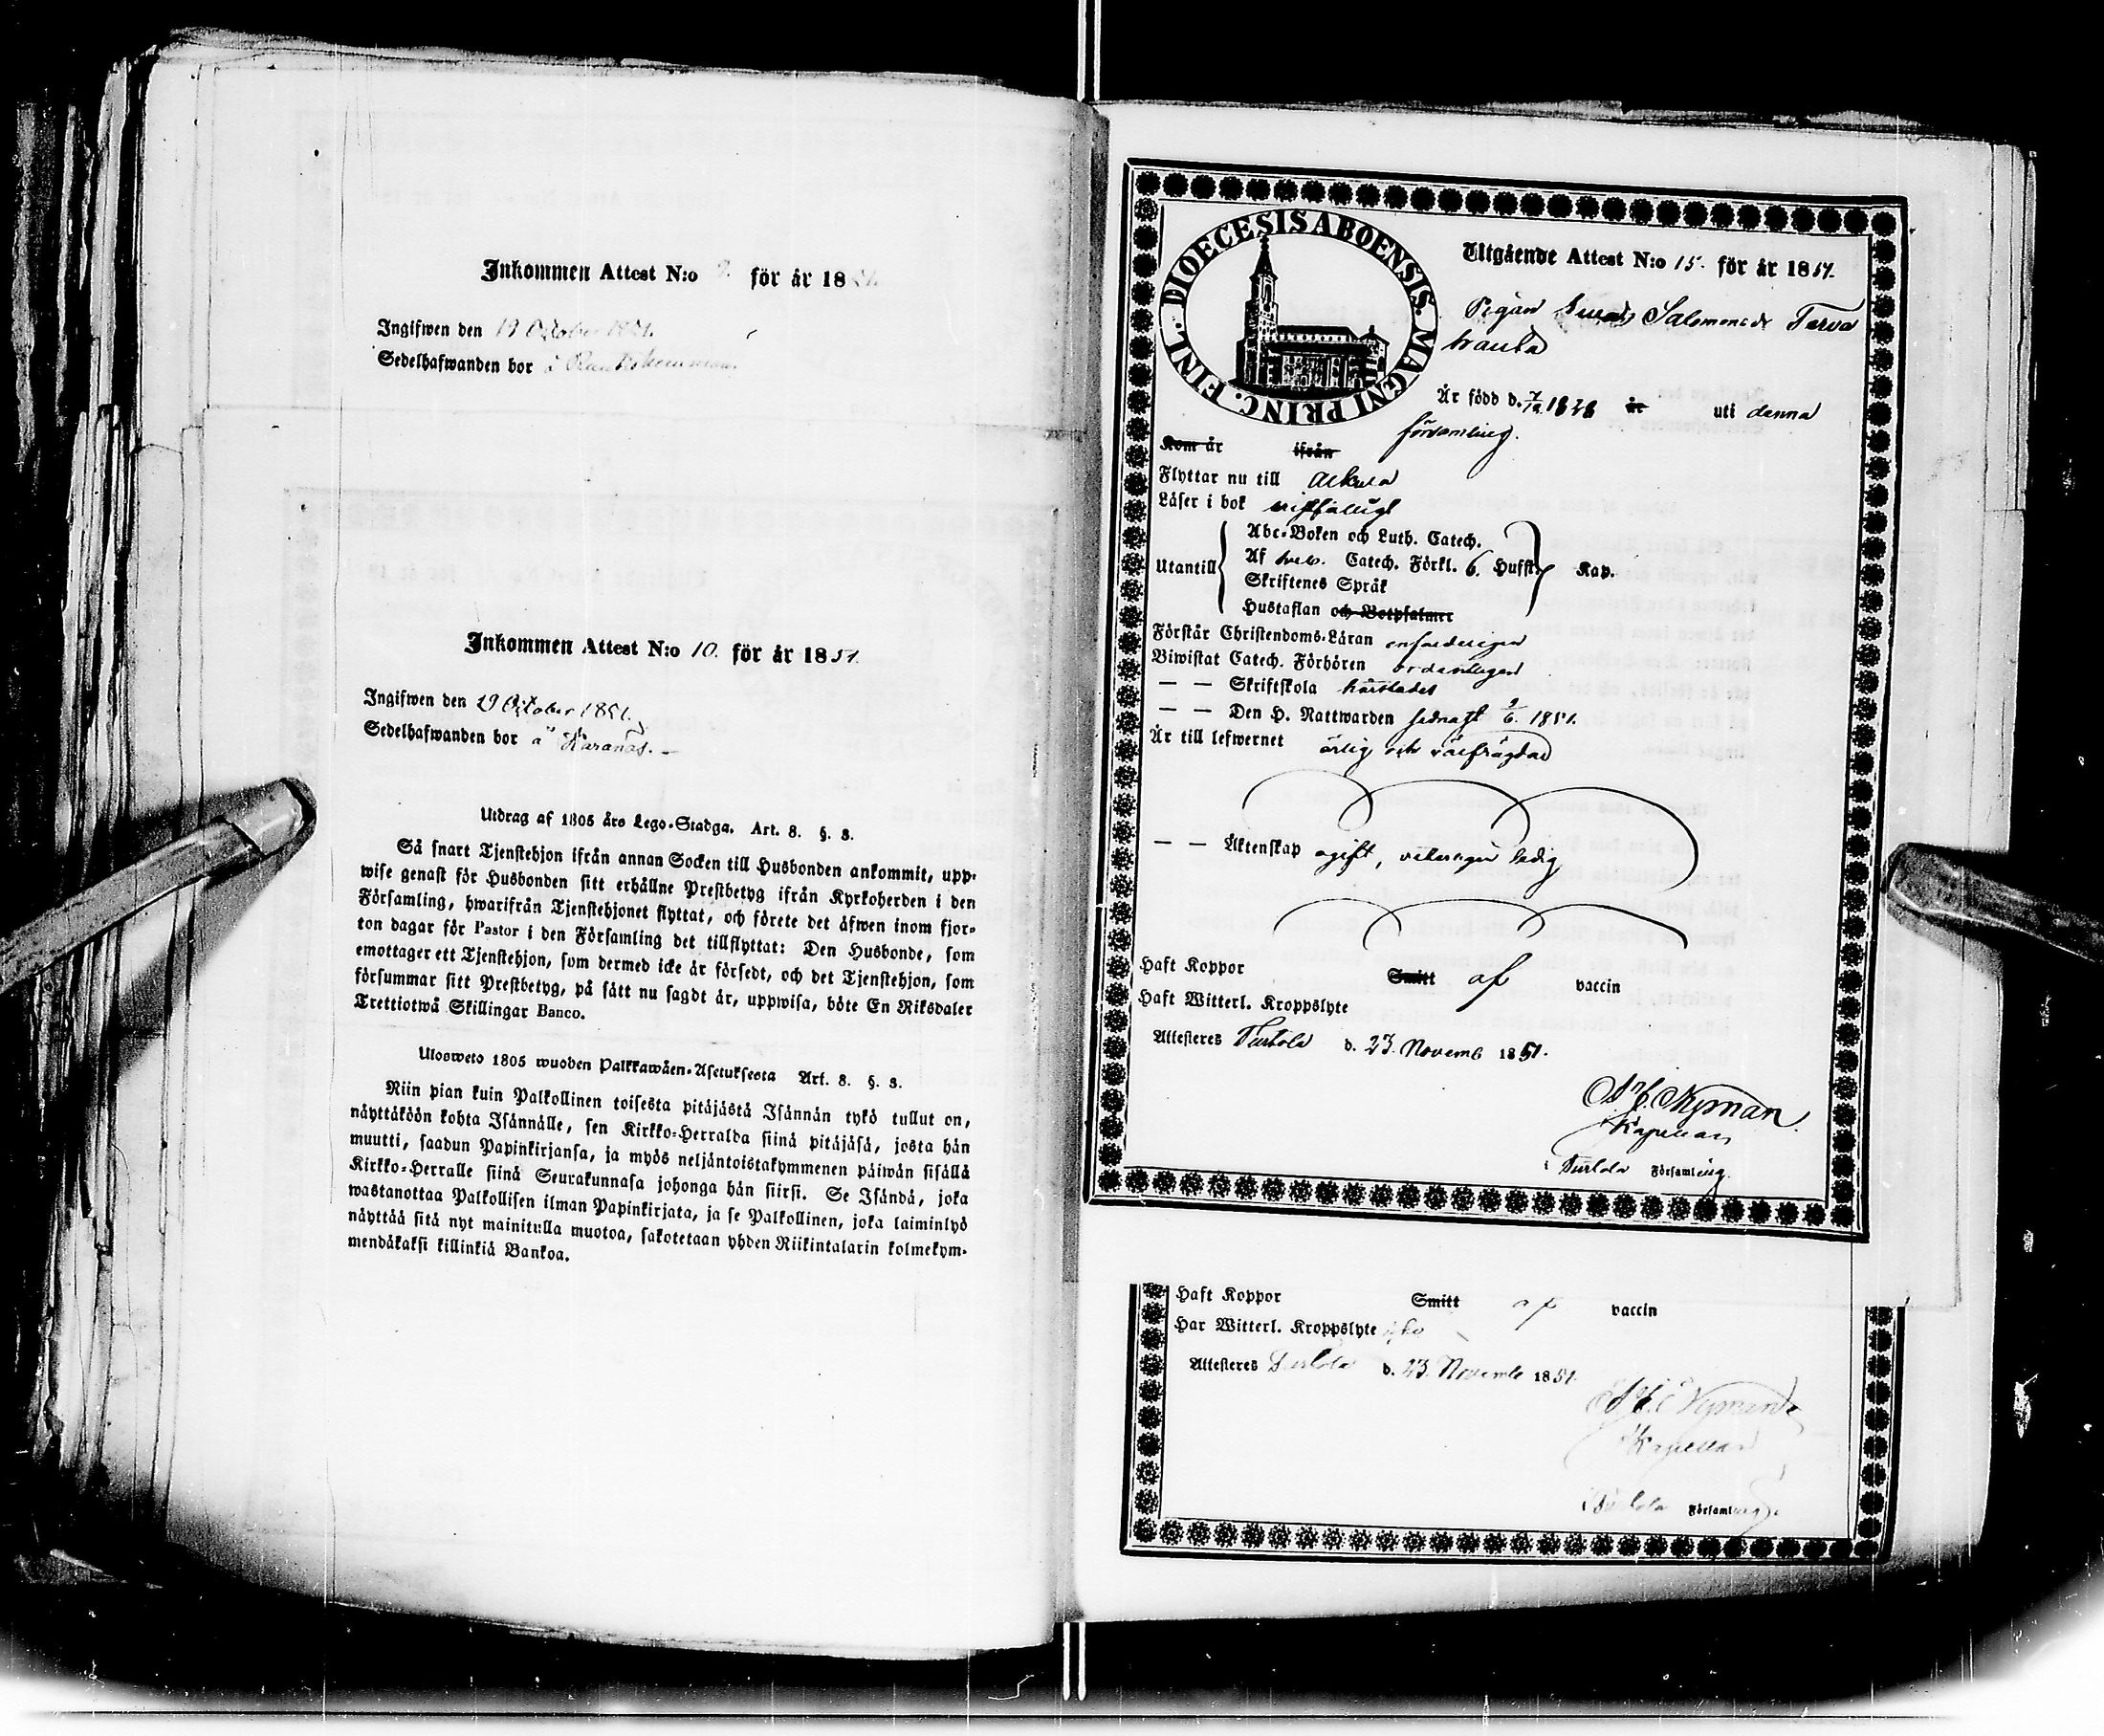 Inkommen Attest N:o 9. för år 1851.
Ingifwen den 19 October 1851.
Sedelhafwanden bor å
Inkommen Attest N:o 10. för år 1851.
Ingifwen den 19 October 1851.
Sedelhafwanden bor å
Utdrag af 1805 års Lego-Stadga. Art. 8. §. 8.
Så snart Tjenstehjon ifrån annan Socken till Husbonden ankommit, upp-
wise genast för Husbonden sitt erhållne Prestbetyg ifrån Kyrkoherden i den
Församling, hwarifrån Tjenstehjonet flyttat, och förete det äfwen inom fjor-
ton dagar för Pastor i den Församling det tillflyttat: Den Husbonde, som
emottager ett Tjenstehjon, som dermed icke är försedt, och det Tjenstehjon, som
försummar sitt Prestbetyg, på sätt nu sagdt är, uppwisa, böte En Riksdaler
Trettiotwå Skillingar Banco.
Ulosweto 1805 wuoden Palkkawäen-Asetuksesta Art. 8. §. 8.
Niin pian kuin Palkollinen toisesta pitäjästä Isännän tykö tullut on,
näyttäköön kohta Isännälle, sen Kirkko-Herralda siinä pitäjäsä, josta hän
muutti, saadun Papinkirjansa, ja myös neljäntoistakymmenen päiwän sisällä
Kirkko-Herralle siinä Seurakunnasa johonga hän siirsi. Se Isändä, joka
wastanottaa Palkollisen ilman Papinkirjata, ja se Palkollinen, joka laiminlyö
näyttää sitä nyt mainitulla muotoa, sakotetaan yhden Riikintalarin kolmekym-
mendäkaksi killinkiä Bankoa.
DIOECESIS ABOENSIS. MAGNI PRINC. FINL.
Utgående Attest N:o 15. för år 1851.
Pigan Salomonsdr Terva
Är född d. 1828 år uti denna
församling.
Kom år ifrån
Flyttar nu till Alkula
Läser i bok
Utantill
Abc-Boken och Luth. Catech.
Af Catech. Förkl. 6. Hufst. Kap.
Skriftenes Språk
Hustaflan och Botpsalmer
Förstår Christendoms-Läran enfaldeligen
Biwistat Catech. Förhören ordentligen
— — Skriftskola
— — Den H. Nattwarden sednast 2/6. 1851.
Är till lefwernet ärlig och välfrägdad
— — Äktenskap ogift, ledig
Haft Koppor Smitt af vaccin
Haft Witterl. Kroppslyte
Attesteres Turtola d. 23. Novemb 1851.
Nyman
Kapellan
i Turtola Församling.
Haft Koppor Smitt af vaccin
Har Witterl. Kroppslyte
Attesteres Turtola d. 23 Novemb 1851.
Nyman
Kapellan
i Turtola Församling.